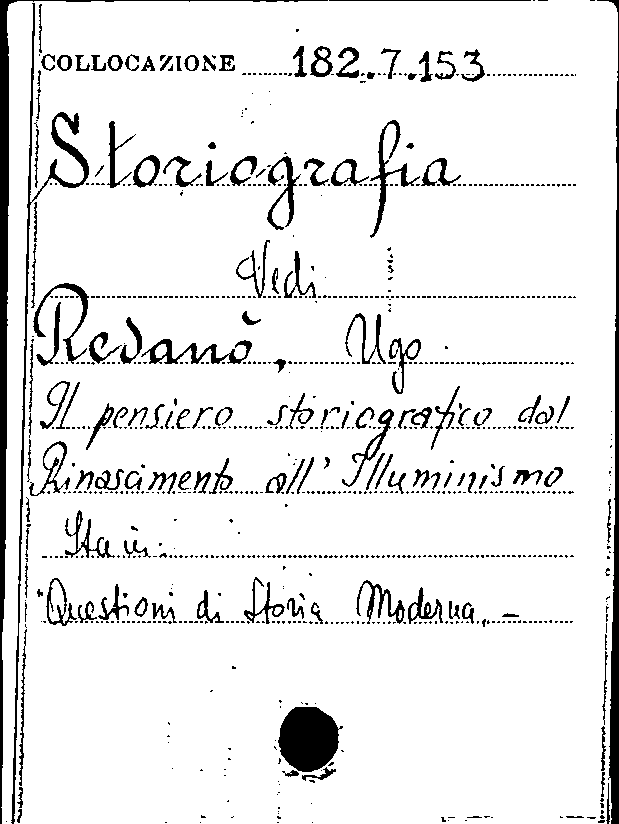 COLLOCAZIONE 182.7.153
Storiografia
Vedi
Redanò, Ugo
Il pensiero storiografico dal
Rinascimento all'Illuminismo
Sta in:
"Questioni di Storia Moderna. –